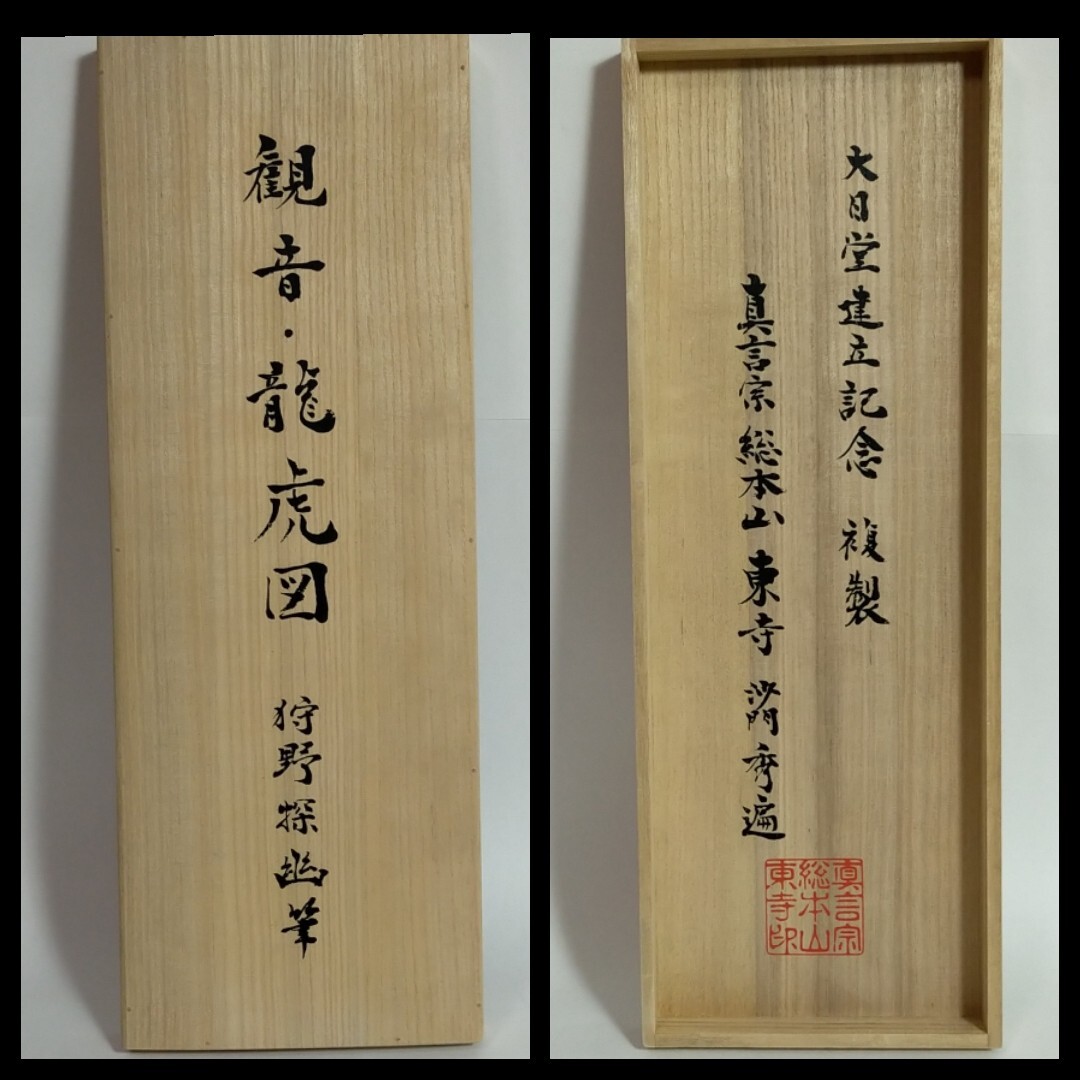 観音・龍虎図 狩野探幽筆
大日堂建立記念 複製
真言宗総本山東寺 沙門秀遍
真言宗
総本山
東寺印